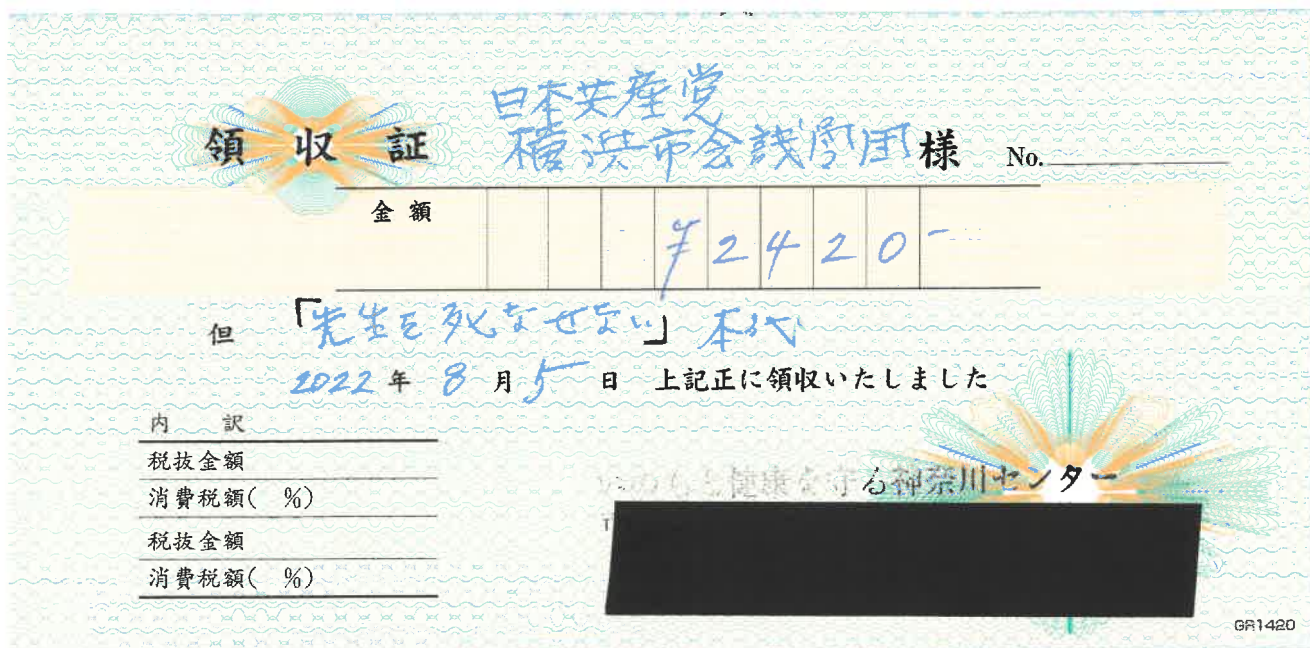 領収証
日本共産党
横浜市会議員団 様 No.
金額
¥2420-
但 「先生を死なせない」 本代
2022年 8月5日 上記正に領収いたしました
内訳
税抜金額
消費税額( %)
税抜金額
消費税額( %)
いのちと健康を守る神奈川センター
GR1420